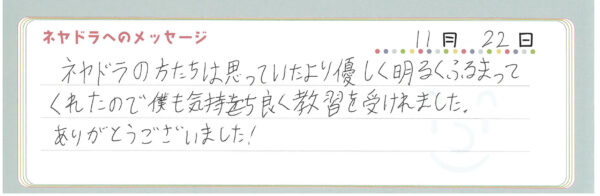 ネヤドラへのメッセージ 11月 22日
ネヤドラの方たちは思っていたより優しく明るくふるまって
くれたので僕も気持ち良く教習を受けれました。
ありがとうございました!